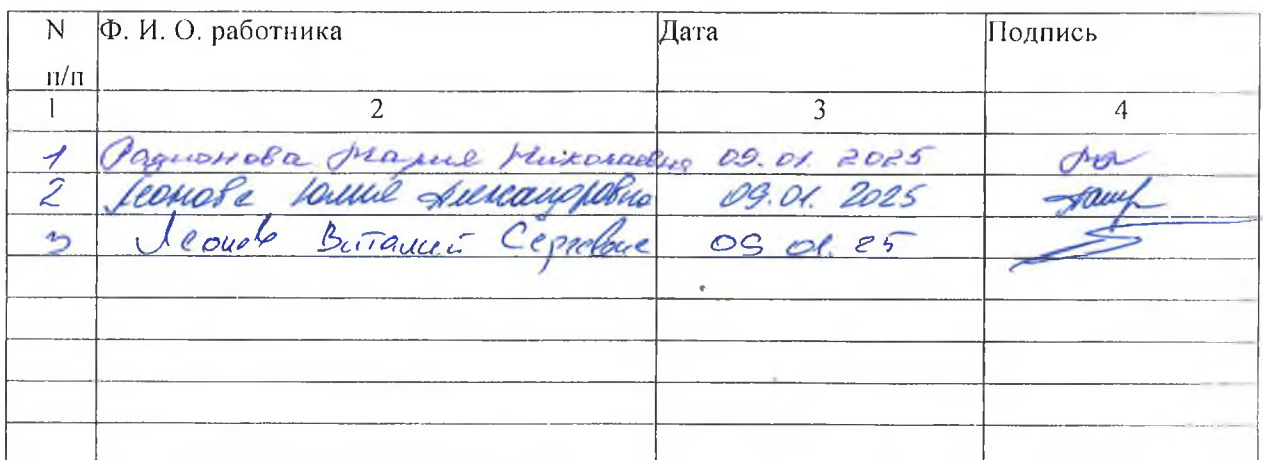 N Ф. И. О. работника Дата Подпись
п/п
1 2 3 4
1 Радионова Мария Николаевна 09.01.2025
2 Леонова Юлия Александровна 09.01.2025
3 Леонов Виталий Сергеевич 09 01. 25